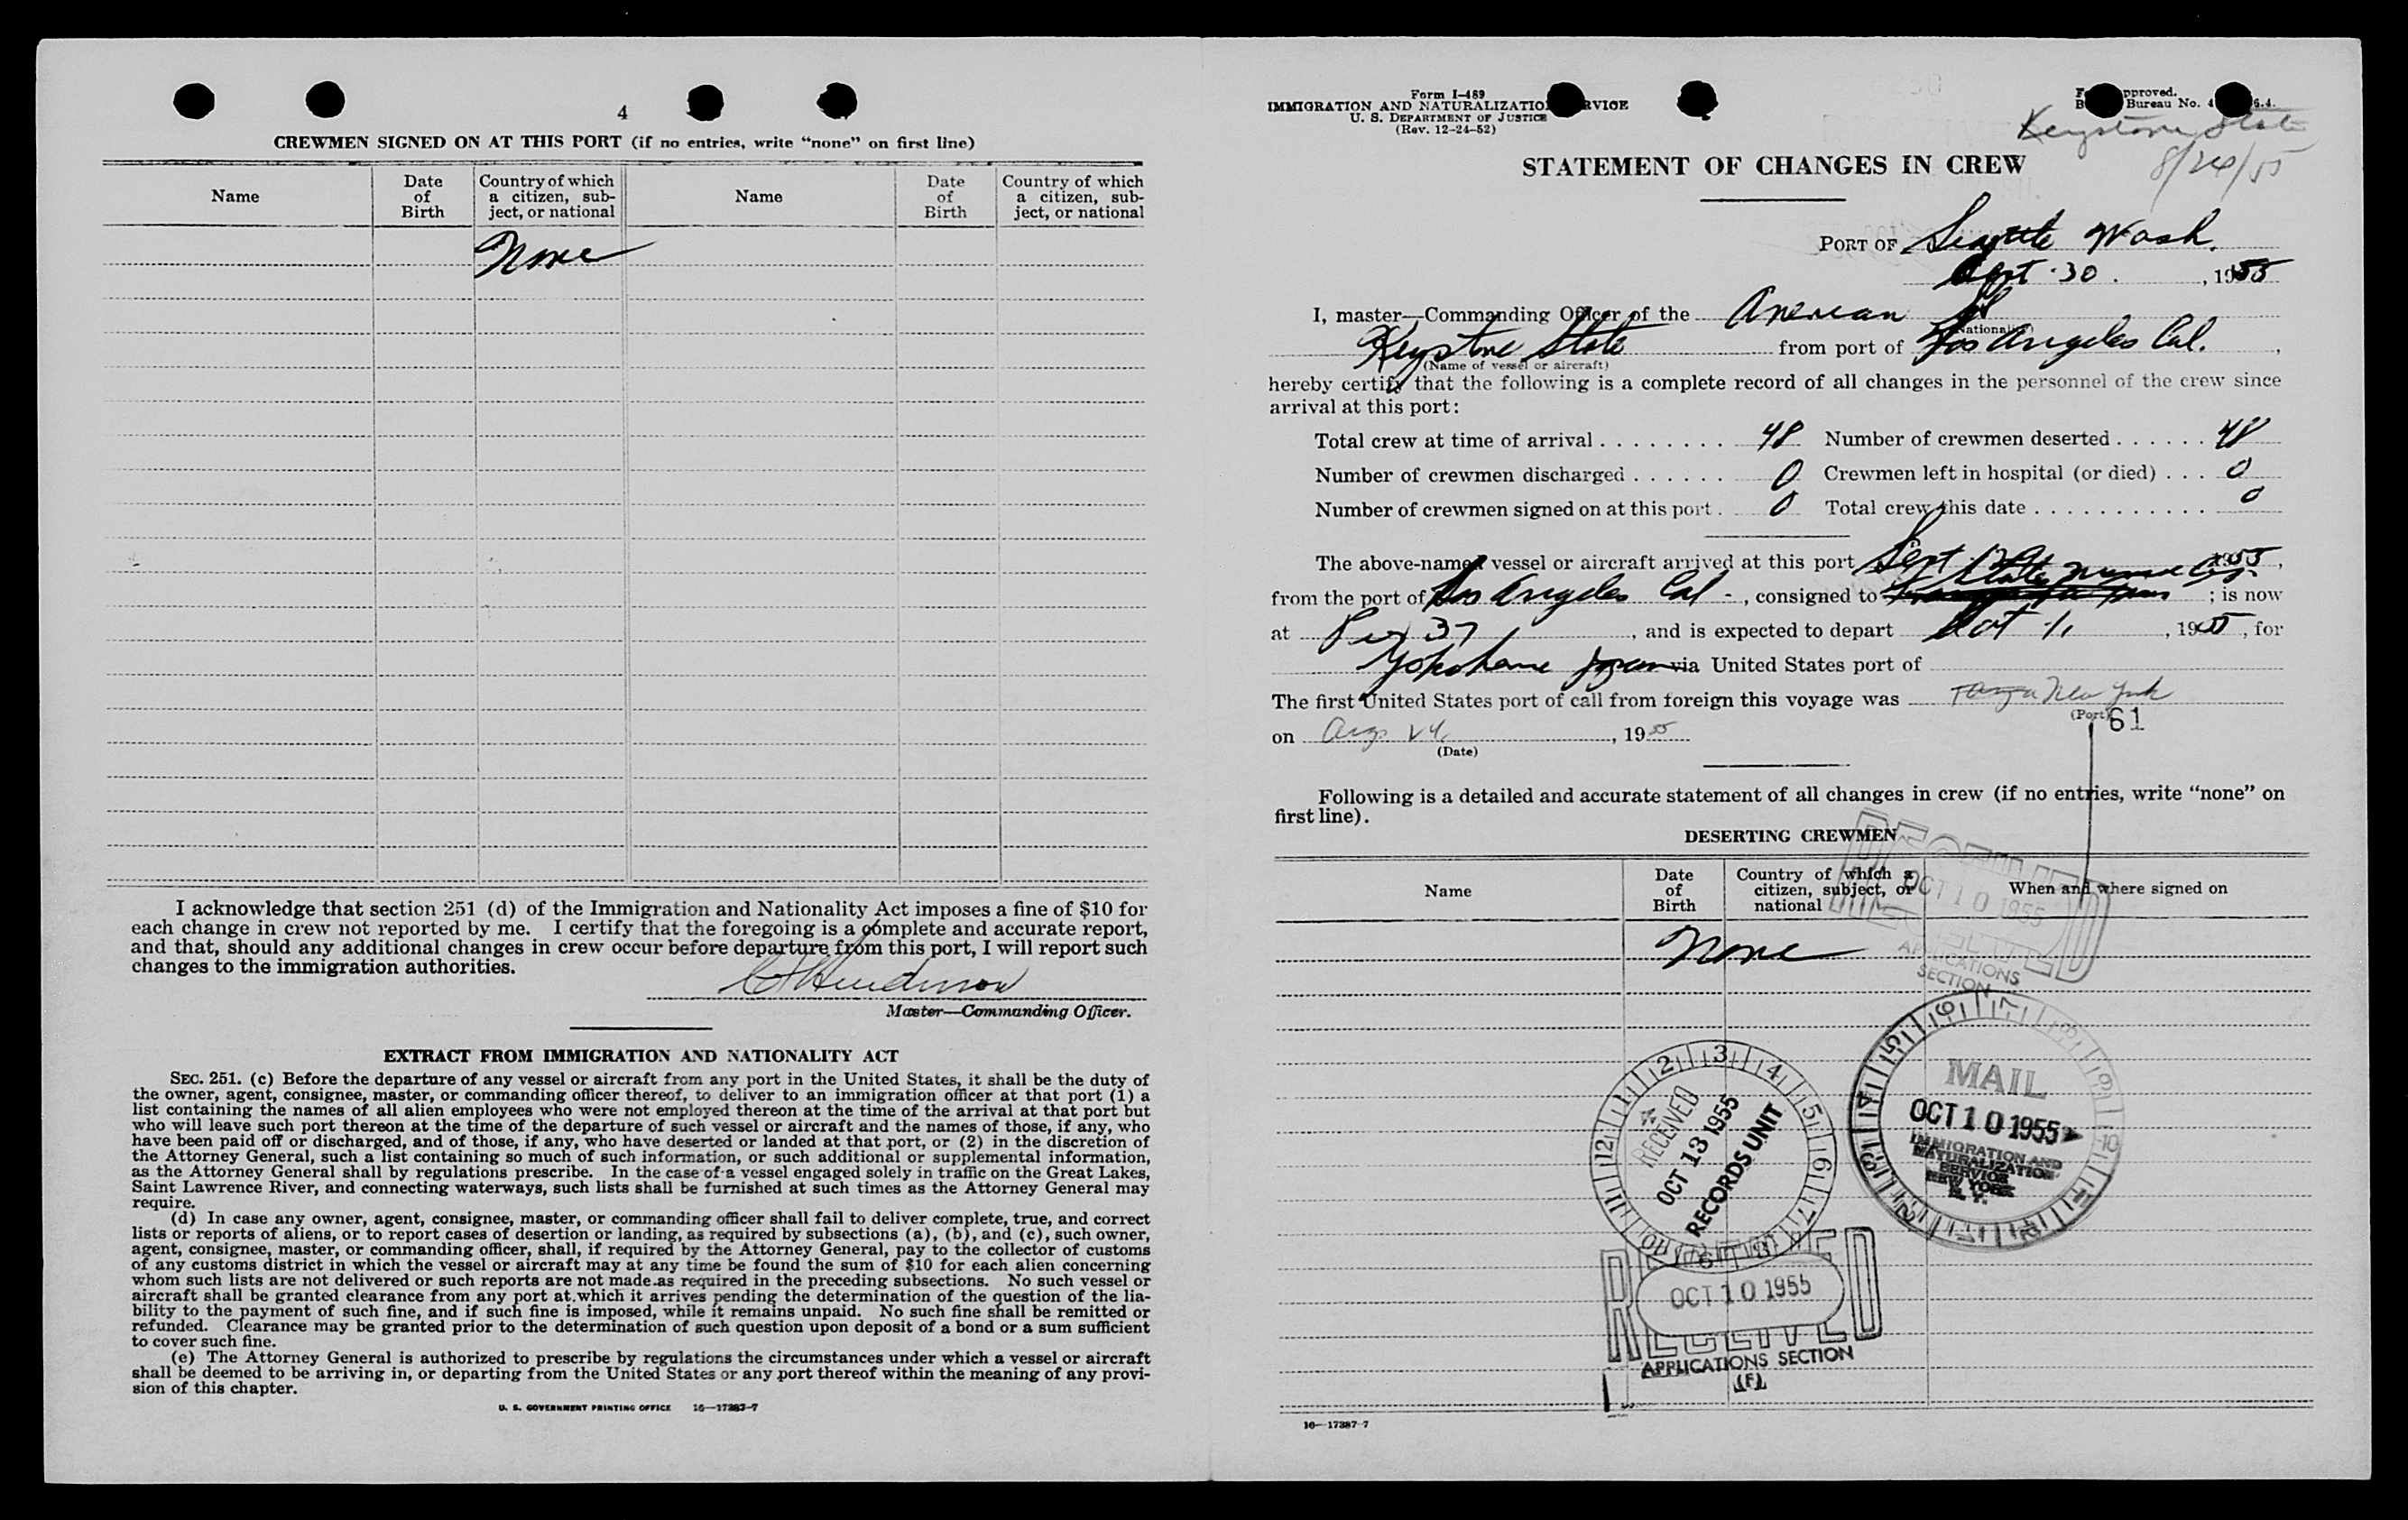 4
CREWMEN SIGNED ON AT THIS PORT (if no entries, write “none” on first line)
Name
Date of Birth
Country of which a citizen, subject, or national
Name
Date of Birth
Country of which a citizen, subject, or national
None
I acknowledge that section 251 (d) of the Immigration and Nationality Act imposes a fine of $10 for
each change in crew not reported by me. I certify that the foregoing is a complete and accurate report,
and that, should any additional changes in crew occur before departure from this port, I will report such
changes to the immigration authorities.
Master—Commanding Officer.
EXTRACT FROM IMMIGRATION AND NATIONALITY ACT
SEC. 251. (c) Before the departure of any vessel or aircraft from any port in the United States, it shall be the duty of
the owner, agent, consignee, master, or commanding officer thereof, to deliver to an immigration officer at that port (1) a
list containing the names of all alien employees who were not employed thereon at the time of the arrival at that port but
who will leave such port thereon at the time of the departure of such vessel or aircraft and the names of those, if any, who
have been paid off or discharged, and of those, if any, who have deserted or landed at that port, or (2) in the discretion of
the Attorney General, such a list containing so much of such information, or such additional or supplemental information,
as the Attorney General shall by regulations prescribe. In the case of a vessel engaged solely in traffic on the Great Lakes,
Saint Lawrence River, and connecting waterways, such lists shall be furnished at such times as the Attorney General may
require.
(d) In case any owner, agent, consignee, master, or commanding officer shall fail to deliver complete, true, and correct
lists or reports of aliens, or to report cases of desertion or landing, as required by subsections (a), (b), and (c), such owner,
agent, consignee, master, or commanding officer, shall, if required by the Attorney General, pay to the collector of customs
of any customs district in which the vessel or aircraft may at any time be found the sum of $10 for each alien concerning
whom such lists are not delivered or such reports are not made as required in the preceding subsections. No such vessel or
aircraft shall be granted clearance from any port at which it arrives pending the determination of the question of the lia-
bility to the payment of such fine, and if such fine is imposed, while it remains unpaid. No such fine shall be remitted or
refunded. Clearance may be granted prior to the determination of such question upon deposit of a bond or a sum sufficient
to cover such fine.
(e) The Attorney General is authorized to prescribe by regulations the circumstances under which a vessel or aircraft
shall be deemed to be arriving in, or departing from the United States or any port thereof within the meaning of any provi-
sion of this chapter.
U. S. GOVERNMENT PRINTING OFFICE 16—17387-7
Form I-489
IMMIGRATION AND NATURALIZATIO RVICE
U. S. DEPARTMENT OF JUSTICE
(Rev. 12-24-52)
pproved.
Bureau No. 4 6.4.
Keystone State
8/24/55
STATEMENT OF CHANGES IN CREW
PORT OF Seattle Wash.
30. , 1955
I, master—Commanding Officer of the American
(Nationality)
Keystone State from port of Los Angeles Cal. ,
(Name of vessel or aircraft)
hereby certify that the following is a complete record of all changes in the personnel of the crew since
arrival at this port:
Total crew at time of arrival . . . . . . . . 48 Number of crewmen deserted . . . . . . 48
Number of crewmen discharged . . . . . . 0 Crewmen left in hospital (or died) . . . 0
Number of crewmen signed on at this port . 0 Total crew this date . . . . . . . . . . . 0
The above-named vessel or aircraft arrived at this port Sept 1955 ,
from the port of Los Angeles Cal - , consigned to ; is now
at Pier 37 , and is expected to depart Oct 1. , 1955 , for
Yokohama Japan via United States port of
The first United States port of call from foreign this voyage was New York
(Port) 61
on Aug. 24, , 1955
(Date)
Following is a detailed and accurate statement of all changes in crew (if no entries, write “none” on
first line).
DESERTING CREWMEN
Name
Date of Birth
Country of which a citizen, subject, or national
When and where signed on
None
RECEIVED
OCT 10 1955
APPLICATIONS
SECTION
MAIL
OCT 10 1955
IMMIGRATION AND
NATURALIZATION
SERVICE
NEW YORK
N. Y.
RECEIVED
OCT 13 1955
RECORDS UNIT
RECEIVED
OCT 10 1955
APPLICATIONS SECTION
(F)
16—17387-7